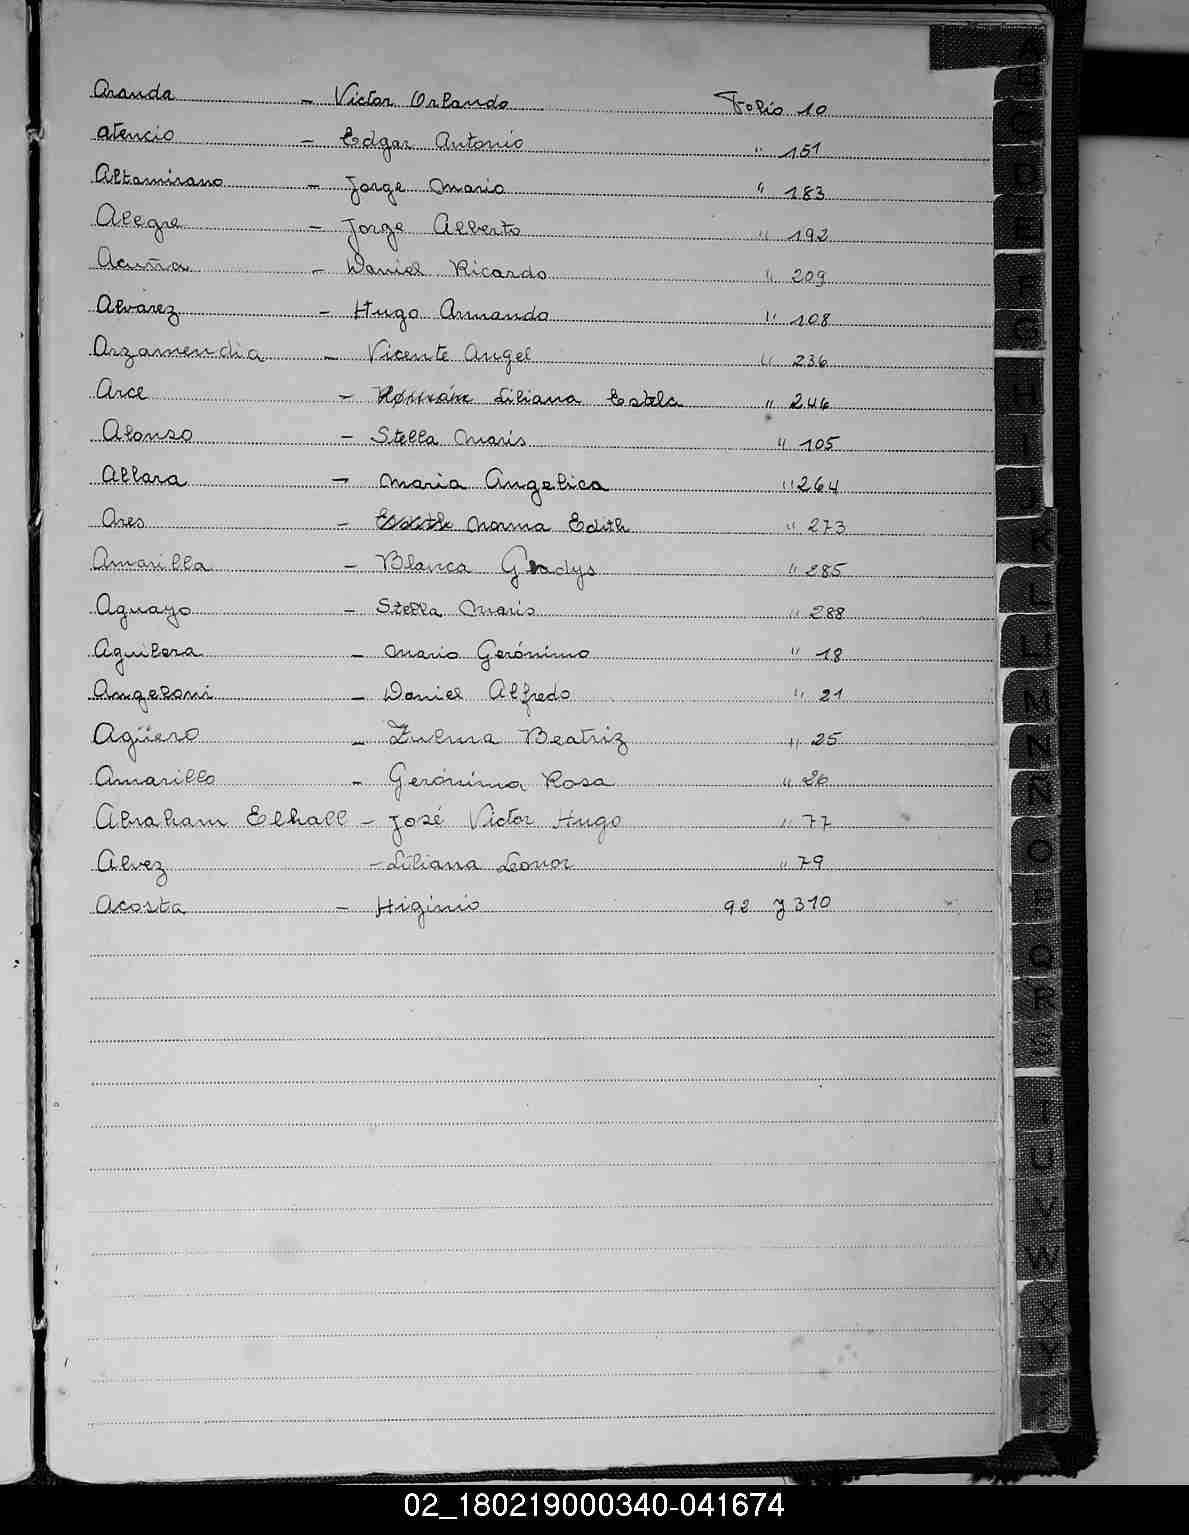 Aranda - Victor Orlando Folio 10
atencio - Edgar Antonio " 151
Altamirano - Jorge Mario " 183
Alegre - Jorge Alberto " 192
Acuña - Daniel Ricardo " 209
Alvarez - Hugo Armando " 108
Arzamendia - Vicente Angel " 236
Arce - Liliana Estela " 246
Alonso - Stella Maris " 105
Allara - Maria Angelica " 264
Ares - Norma Edith " 273
Amarilla - Blanca Gladys " 285
Aguayo - Stella Maris " 288
Aguilera - Mario Gerónimo " 18
Angeloni - Daniel Alfredo " 21
Agüero - Zulma Beatriz " 25
Amarillo - Gerónima Rosa " 26
Abraham Elhall - José Victor Hugo " 77
Alvez - Liliana Leonor " 79
Acosta - Higinio 92 y 310
A
B
C
D
E
F
G
H
I
J
K
L
LL
M
N
Ñ
O
P
Q
R
S
T
U
V
W
X
Y
Z
02_180219000340-041674